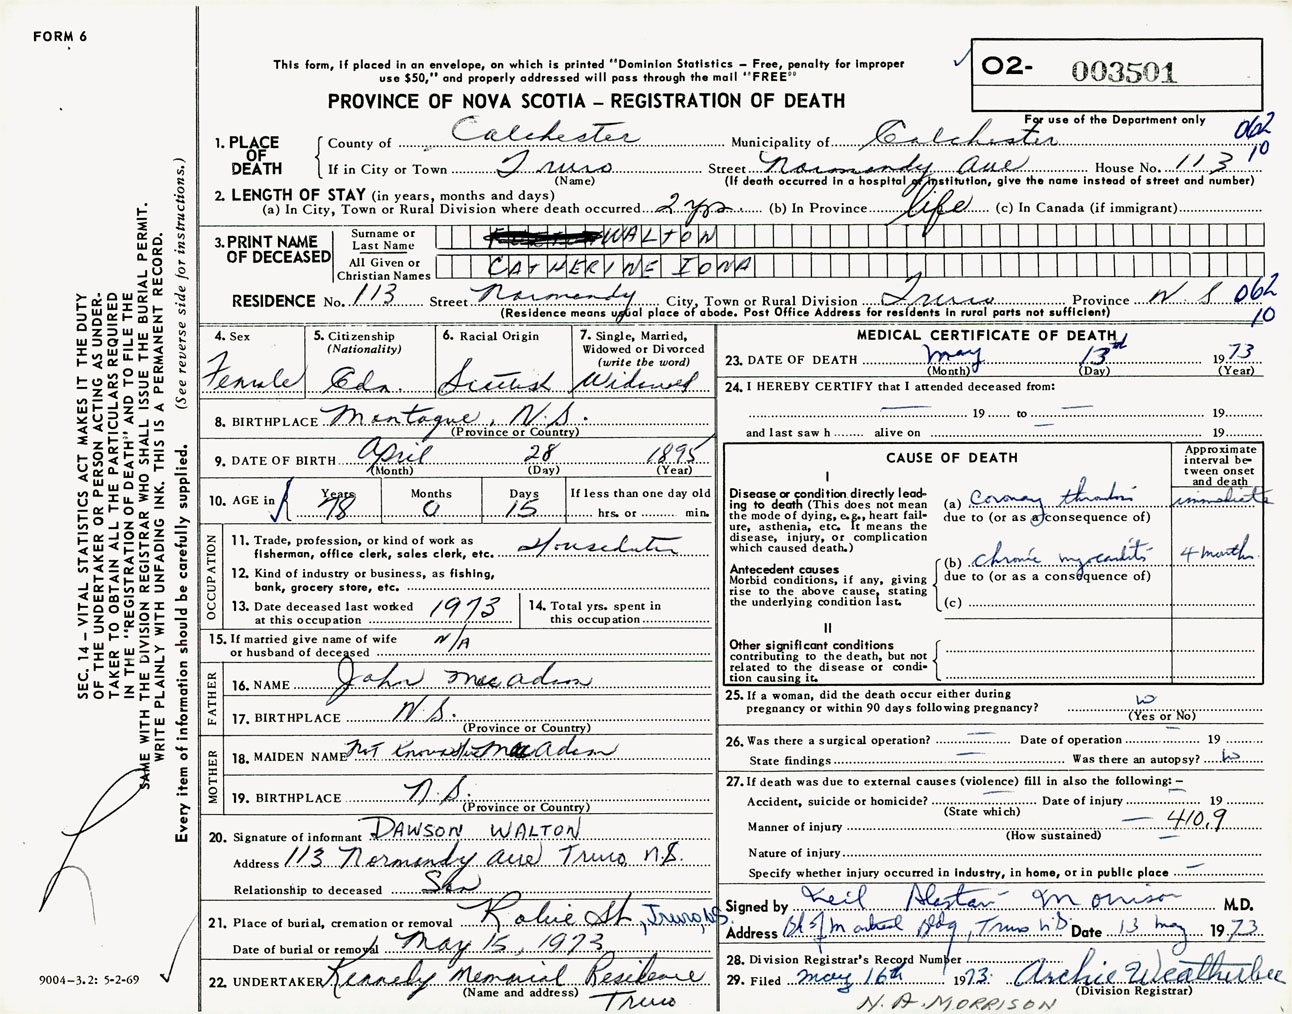 FORM 6
This form, if placed in an envelope, on which is printed "Dominion Statistics – Free, penalty for improper
use $50," and properly addressed will pass through the mail "FREE"
PROVINCE OF NOVA SCOTIA – REGISTRATION OF DEATH
O2- 003501
For use of the Department only
062
10
1. PLACE OF DEATH
County of Colchester Municipality of Colchester
If in City or Town Truro Street Normandy Ave House No. 113
(Name) (If death occurred in a hospital or institution, give the name instead of street and number)
2. LENGTH OF STAY (in years, months and days)
(a) In City, Town or Rural Division where death occurred 2 yrs. (b) In Province life (c) In Canada (if immigrant)
3. PRINT NAME OF DECEASED
Surname or Last Name WALTON
All Given or Christian Names CATHERINE IONA
RESIDENCE No. 113 Street Normandy City, Town or Rural Division Truro Province N S 062
10
(Residence means usual place of abode. Post Office Address for residents in rural parts not sufficient)
4. Sex Female
5. Citizenship (Nationality) Cdn.
6. Racial Origin Scottish
7. Single, Married, Widowed or Divorced (write the word) Widowed
8. BIRTHPLACE Montague, N.S.
(Province or Country)
9. DATE OF BIRTH April 28 1895
(Month) (Day) (Year)
10. AGE in Years 78 Months 0 Days 15 If less than one day old
hrs. or min.
OCCUPATION
11. Trade, profession, or kind of work as
fisherman, office clerk, sales clerk, etc.
12. Kind of industry or business, as fishing,
bank, grocery store, etc.
13. Date deceased last worked
at this occupation 1973
14. Total yrs. spent in
this occupation
15. If married give name of wife
or husband of deceased N/A
FATHER
16. NAME John
17. BIRTHPLACE N.S.
(Province or Country)
MOTHER
18. MAIDEN NAME Not Known
19. BIRTHPLACE N.S.
(Province or Country)
20. Signature of informant DAWSON WALTON
Address 113 Normandy Ave Truro N.S.
Relationship to deceased Son
21. Place of burial, cremation or removal Robie St., Truro, N.S.
Date of burial or removal May 15, 1973
22. UNDERTAKER Kennedy Memorial Residence
(Name and address) Truro
MEDICAL CERTIFICATE OF DEATH
23. DATE OF DEATH May 13th 1973
(Month) (Day) (Year)
24. I HEREBY CERTIFY that I attended deceased from:
19 to 19
and last saw h alive on 19
CAUSE OF DEATH
Approximate interval between onset and death
I
Disease or condition directly lead-
ing to death (This does not mean
the mode of dying, e.g., heart fail-
ure, asthenia, etc. It means the
disease, injury, or complication
which caused death.)
(a) coronary thrombosis immediate
due to (or as a consequence of)
Antecedent causes
Morbid conditions, if any, giving
rise to the above cause, stating
the underlying condition last.
(b) chronic myocarditis 4 months
due to (or as a consequence of)
(c)
II
Other significant conditions
contributing to the death, but not
related to the disease or condi-
tion causing it.
25. If a woman, did the death occur either during
pregnancy or within 90 days following pregnancy?
(Yes or No)
26. Was there a surgical operation? Date of operation 19
State findings Was there an autopsy?
27. If death was due to external causes (violence) fill in also the following: –
Accident, suicide or homicide? Date of injury 19
(State which)
Manner of injury 410.9
(How sustained)
Nature of injury
Specify whether injury occurred in industry, in home, or in public place
Signed by Neil Alastair Morrison M.D.
Address Bk of Montreal Bldg, Truro NS Date 13 May 1973
28. Division Registrar's Record Number
29. Filed May 16th 1973. Archie Weatherbee
(Division Registrar)
N. A. MORRISON
SEC. 14 – VITAL STATISTICS ACT MAKES IT THE DUTY
OF THE UNDERTAKER OR PERSON ACTING AS UNDER-
TAKER TO OBTAIN ALL THE PARTICULARS REQUIRED
IN THE "REGISTRATION OF DEATH" AND TO FILE THE
SAME WITH THE DIVISION REGISTRAR WHO SHALL ISSUE THE BURIAL PERMIT.
WRITE PLAINLY WITH UNFADING INK. THIS IS A PERMANENT RECORD.
Every item of information should be carefully supplied. (See reverse side for instructions.)
9004–3.2: 5-2-69